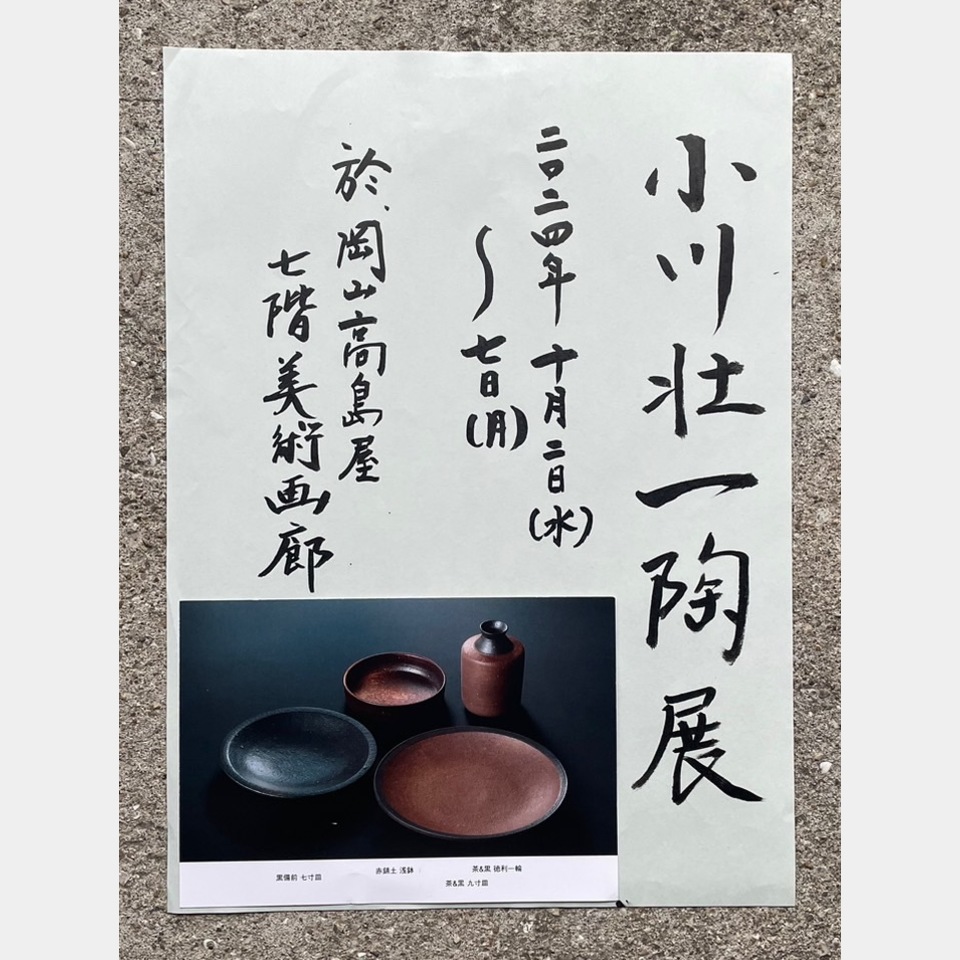 小川壮一陶展
二〇二四年 十月二日(水)
〜七日(月)
於、岡山高島屋
七階美術画廊
赤錆土 浅鉢
茶&黒 徳利一輪
黒備前 七寸皿
茶&黒 九寸皿